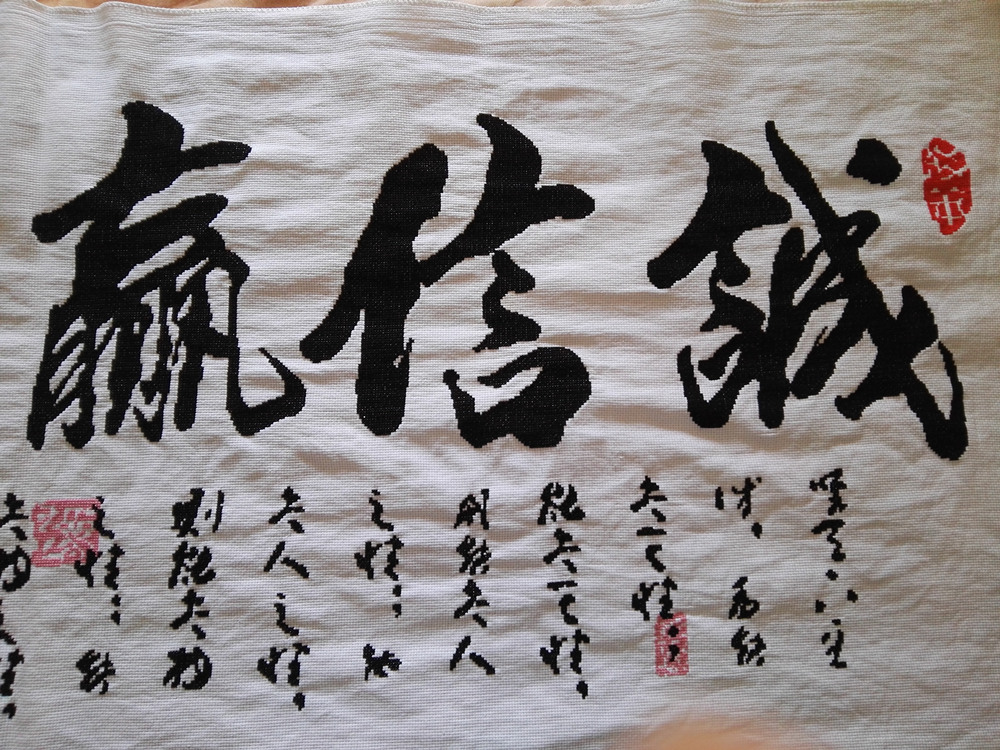 誠信贏
唯天下至
誠，為能
盡其性；
能盡其性，
則能盡人
之性；能
盡人之性，
則能盡物
之性；能
盡物之性，